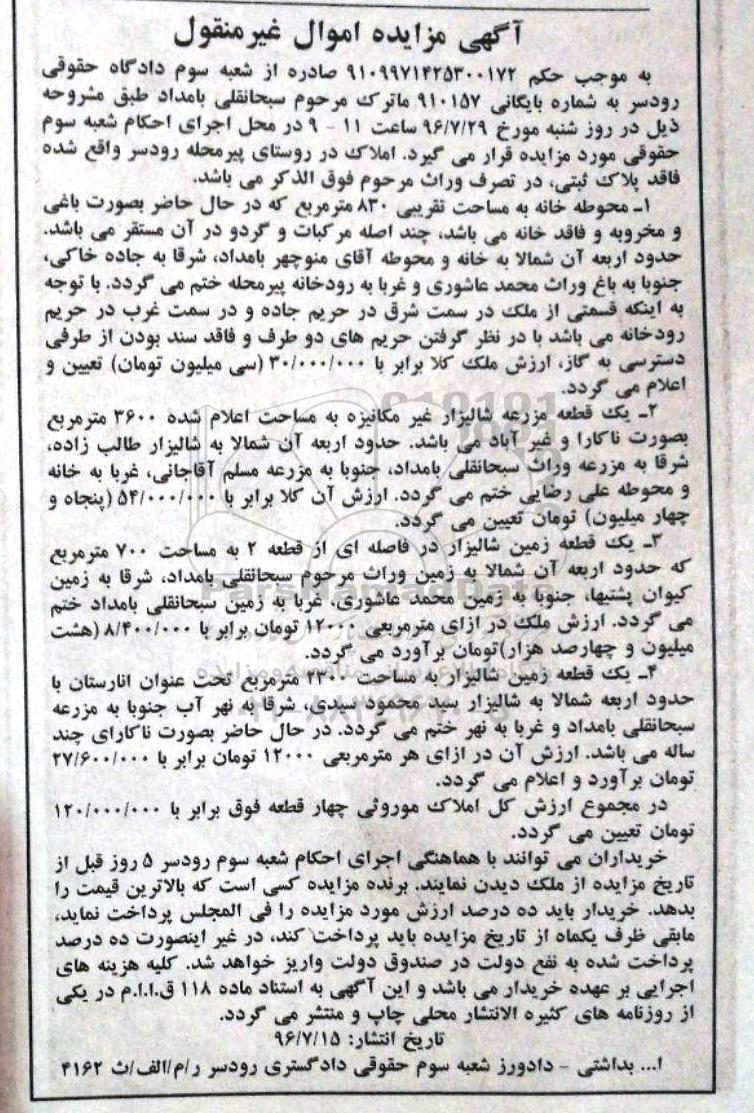 آگهی مزایده اموال غیرمنقول
به موجب حکم ۹۱۰۹۹۷۱۴۲۵۳۰۰۱۷۲ صادره از شعبه سوم دادگاه حقوقی
رودسر به شماره بایگانی ۹۱۰۱۵۷ ماترک مرحوم سبحانقلی بامداد طبق مشروحه
ذیل در روز شنبه مورخ ۹۶/۷/۲۹ ساعت ۱۱ - ۹ در محل اجرای احکام شعبه سوم
حقوقی مورد مزایده قرار می گیرد. املاک در روستای پیرمحله رودسر واقع شده
فاقد پلاک ثبتی، در تصرف وراث مرحوم فوق الذکر می باشد.
۱ـ محوطه خانه به مساحت تقریبی ۸۳۰ مترمربع که در حال حاضر بصورت باغی
و مخروبه و فاقد خانه می باشد، چند اصله مرکبات و گردو در آن مستقر می باشد.
حدود اربعه آن شمالا به خانه و محوطه آقای منوچهر بامداد، شرقا به جاده خاکی،
جنوبا به باغ وراث محمد عاشوری و غربا به رودخانه پیرمحله ختم می گردد. با توجه
به اینکه قسمتی از ملک در سمت شرق در حریم جاده و در سمت غرب در حریم
رودخانه می باشد با در نظر گرفتن حریم های دو طرف و فاقد سند بودن از طرفی
دسترسی به گاز، ارزش ملک کلا برابر با ۳۰/۰۰۰/۰۰۰ (سی میلیون تومان) تعیین و
اعلام می گردد.
۲ـ یک قطعه مزرعه شالیزار غیر مکانیزه به مساحت اعلام شده ۳۶۰۰ مترمربع
بصورت ناکارا و غیر آباد می باشد. حدود اربعه آن شمالا به شالیزار طالب زاده،
شرقا به مزرعه وراث سبحانقلی بامداد، جنوبا به مزرعه مسلم آقاجانی، غربا به خانه
و محوطه علی رضایی ختم می گردد. ارزش آن کلا برابر با ۵۴/۰۰۰/۰۰۰ (پنجاه و
چهار میلیون) تومان تعیین می گردد.
۳ـ یک قطعه زمین شالیزار در فاصله ای از قطعه ۲ به مساحت ۷۰۰ مترمربع
که حدود اربعه آن شمالا به زمین وراث مرحوم سبحانقلی بامداد، شرقا به زمین
کیوان پشتیها، جنوبا به زمین محمد عاشوری، غربا به زمین سبحانقلی بامداد ختم
می گردد. ارزش ملک در ازای مترمربعی ۱۲۰۰۰ تومان برابر با ۸/۴۰۰/۰۰۰ (هشت
میلیون و چهارصد هزار)تومان برآورد می گردد.
۴ـ یک قطعه زمین شالیزار به مساحت ۲۳۰۰ مترمربع تحت عنوان انارستان با
حدود اربعه شمالا به شالیزار سید محمود سیدی، شرقا به نهر آب جنوبا به مزرعه
سبحانقلی بامداد و غربا به نهر ختم می گردد. در حال حاضر بصورت ناکارای چند
ساله می باشد. ارزش آن در ازای هر مترمربعی ۱۲۰۰۰ تومان برابر با ۲۷/۶۰۰/۰۰۰
تومان برآورد و اعلام می گردد.
در مجموع ارزش کل املاک موروثی چهار قطعه فوق برابر با ۱۲۰/۰۰۰/۰۰۰
تومان تعیین می گردد.
خریداران می توانند با هماهنگی اجرای احکام شعبه سوم رودسر ۵ روز قبل از
تاریخ مزایده از ملک دیدن نمایند. برنده مزایده کسی است که بالاترین قیمت را
بدهد. خریدار باید ده درصد ارزش مورد مزایده را فی المجلس پرداخت نماید،
مابقی ظرف یکماه از تاریخ مزایده باید پرداخت کند، در غیر اینصورت ده درصد
پرداخت شده به نفع دولت در صندوق دولت واریز خواهد شد. کلیه هزینه های
اجرایی بر عهده خریدار می باشد و این آگهی به استناد ماده ۱۱۸ ق.ا.ا.م در یکی
از روزنامه های کثیره الانتشار محلی چاپ و منتشر می گردد.
تاریخ انتشار: ۹۶/۷/۱۵
ا... بداشتی - دادورز شعبه سوم حقوقی دادگستری رودسر ر/م/الف/ث ۴۱۶۲